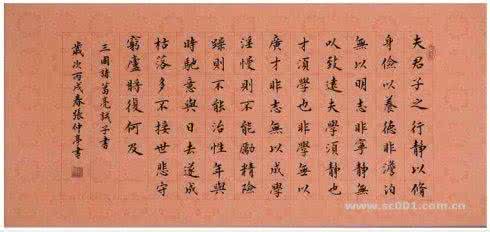 夫君子之行靜以脩
身儉以養德非澹泊
無以明志非寧靜無
以致遠夫學須靜也
才須學也非學無以
廣才非志無以成學
淫慢則不能勵精險
躁則不能治性年與
時馳意與日去遂成
枯落多不接世悲守
窮廬將復何及
三國諸葛亮誡子書
歲次丙戌春張仲亭書
www.sc001.com.cn